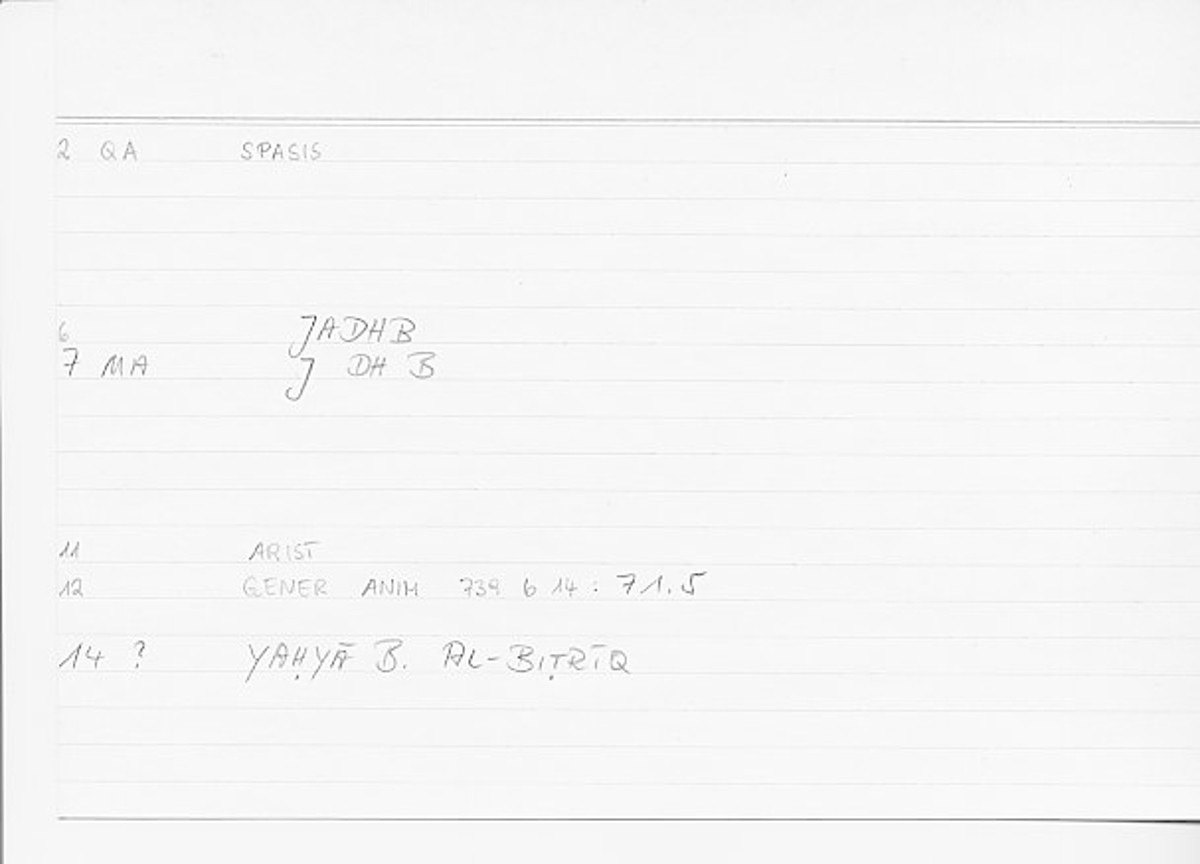 2 QA SPASIS
6 JADHB
7 MA J DH B
11 ARIST
12 GENER ANIM 739 b 14 : 71.5
14 ? YAḤYĀ B. AL-BIṬRĪQ